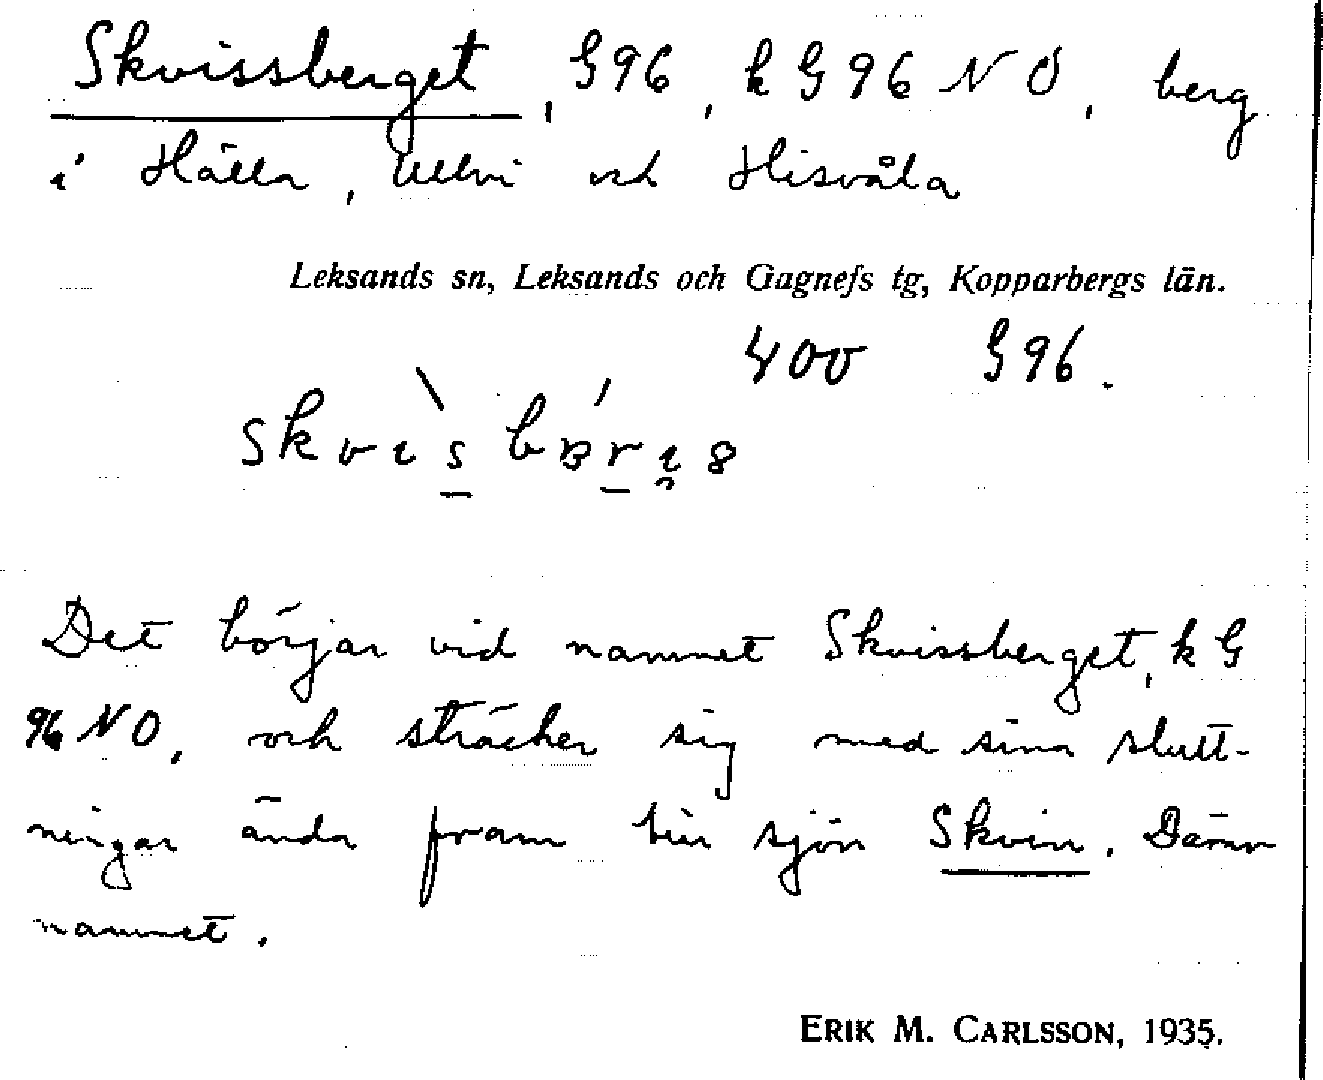 Skvissberget, G96, k G 96 NO, berg
i Hälla, Ullvi och Hisvåla
Leksands sn, Leksands och Gagnefs tg, Kopparbergs län.
400 G96.
Det börjar vid namnet Skvissberget, k G
96 NO, och sträcker sig med sina slutt-
ningar ända fram till sjön Skvin. Därav
namnet.
ERIK M. CARLSSON, 1935.